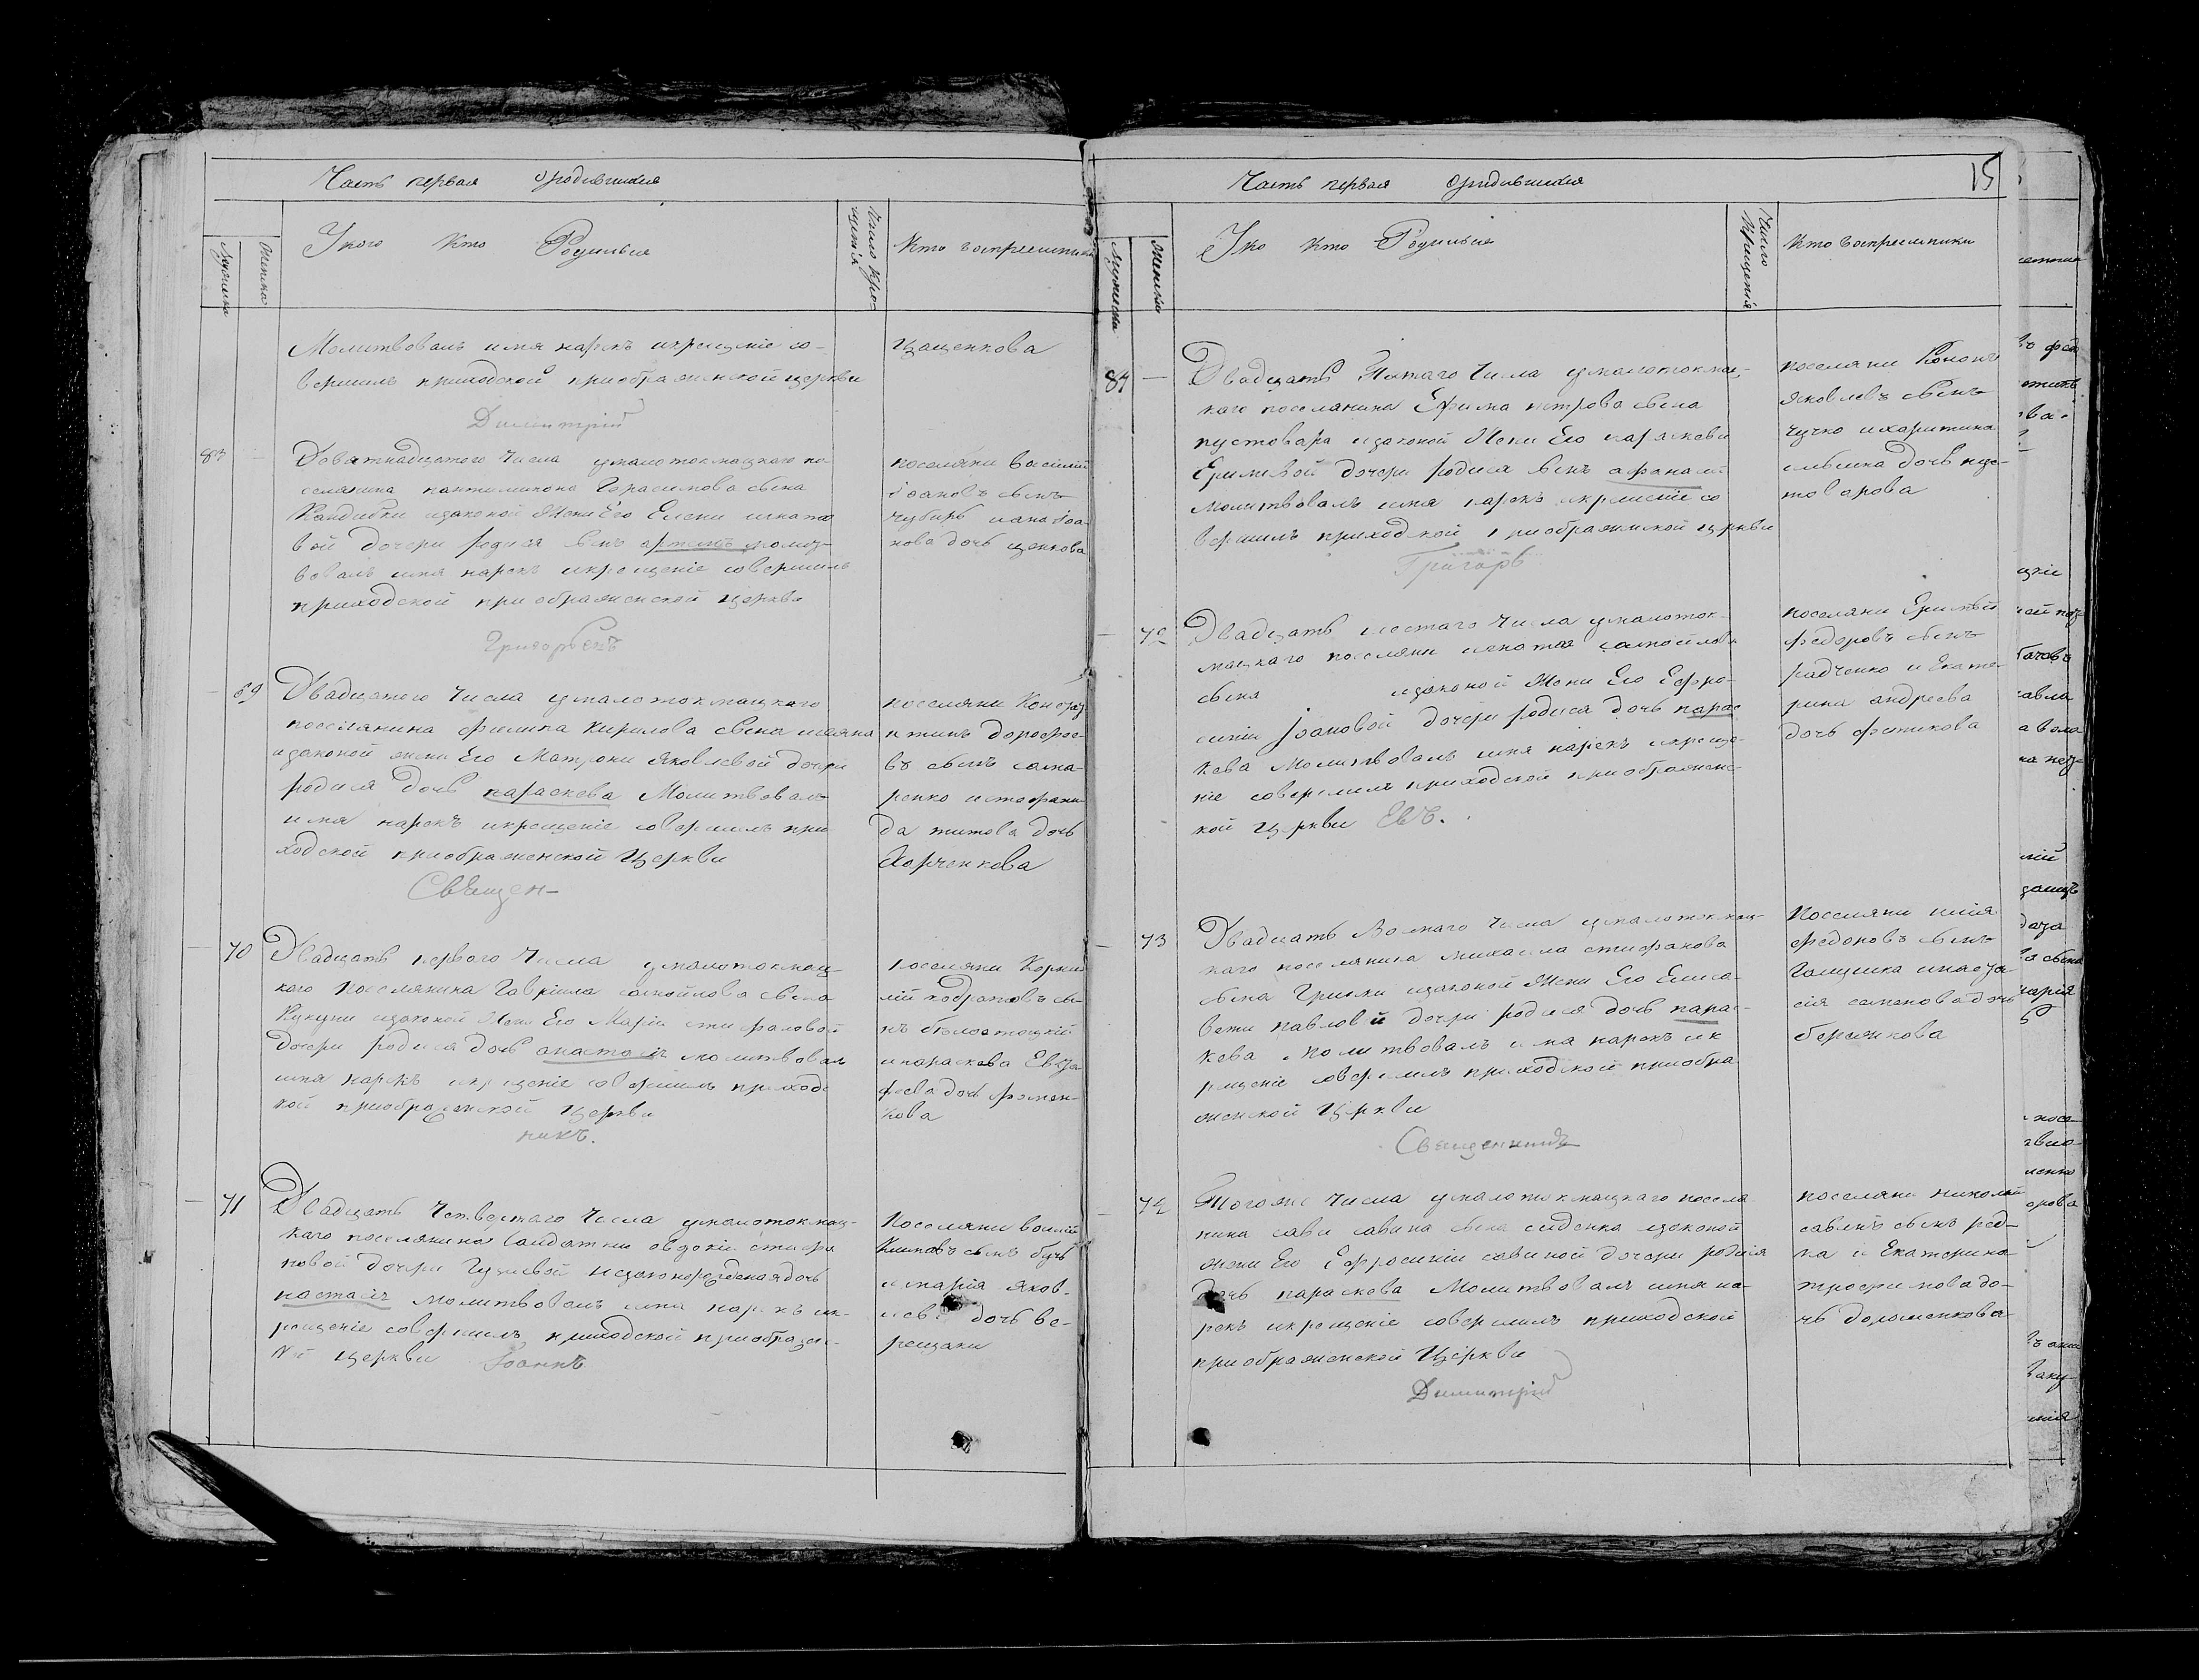 Часть первая о родившихся
Мужеска
Женска
У кого кто Родился
Число кре-
щенія
Кто восприемники
Молитвовалъ имя нарекъ икрещеніе со-
вершилъ приходской приображенской церкви
цощенкова
Димитрій
83
Девятнадцатого Числа умалотокмацкаго по-
селянина пантилимона Герасимова сына
Кандибки изаконой Жени Его Елени игнато
вой дочери родися сынъ артемъ молит-
вовалъ имя нарекъ икрещеніе совершилъ
приходской приображенской церкви
поселяни василий
іоановъ сынъ
чубирь иана іоа-
нова дочь цонкова
Григорьевъ
69
Двадцатого Числа умалотокмацкаго
поселянина филипа Кирилова сына
изаконой жени Его Матрони Яковлевой дочери
родися дочь параскева Молитвовалъ
имя нарекъ икрещеніе совершилъ при
ходской приображенской Церкви
поселяни
дорофее-
въ сынъ сама-
ренко истефани-
да титова дочь
Харченкова
Священ-
70
Двадцать первого Числа умалотокмац-
кого поселянина Гавріила самойлова сына
Кукули изаконой Жени Его Маріи стифановой
дочери родися дочь анастасія молитвовал
имя нарекъ икрещеніе совершилъ приходс
кой приображенской Церкви
поселяни Корни
лій кодратовъ сы-
нъ белостоцкій
ипараскева Евдо
феева дочь фомен-
кова
никъ.
71
Двадцать Четвертаго Числа умалотокмац-
каго поселянина Солдатки овдокіи стифа
новой дочери Гузиевой незаконорожденая дочь
настасія молитвовалъ имя нарекъ ик-
рещеніе совершилъ приходской приображен-
кой Церкви Іоаннъ
Поселяни василій
Климовъ сынъ бутъ
имарія яков-
лева дочь ве-
рещаки
Часть первая о родившихся
15
Мужеска
Женска
У ко кто Родился
Число
Крещенія
Кто восприемники
84
Двадцать Пятаго Числа умалотокмац-
каго поселянина Ефима петрова сына
пустовара изаконой Жени Его параскеви
Еримиевой дочери родися сынъ афанасій
молитвовалъ имя нарекъ икрещеніе со
вершилъ приходской приображенской церкви
поселяни Кононъ
яковлевъ сынъ
чучко ихаритина
дочь пус-
товарова
Григорь
72
Двадцать шестаго Числа умалоток-
мацкаго поселяни игнатія самойлова
сына изаконой Жени Его Ефро-
синіи Іоановой дочери родися дочь парас
кева Молитвовалъ имя нарекъ икреще-
ніе совершилъ приходской приображенс-
кой церкви Евъ.
поселяни Еримѣй
федоровъ сынъ
радченко и Екате-
рина андреева
дочь фитикова
73
Двадцать Восмаго Числа умалотокмац-
каго поселянина михаила стифанова
сына Гриньки изаконой Жени Его Елиса-
вети павловой дочери родися дочь парас-
кева молитвовалъ имя нарекъ ик
рещеніе совершилъ приходской приобра
женской Церкви
Поселяни илія
сынъ
Галушка инаста-
сія семенова дочь
Священникъ
74
Тогоже Числа умалотокмацкаго поселя
нина сави савина сына сиденка изаконой
жени Его Ефросиніи савиной дочери родися
дочь параскева Молитвовалъ имя на-
рекъ икрещеніе совершилъ приходской
приображенской Церкви
поселяни николай
савинъ сынъ ред-
ка и Екатерина
трофимова до-
чь доломенкова
Димитрій